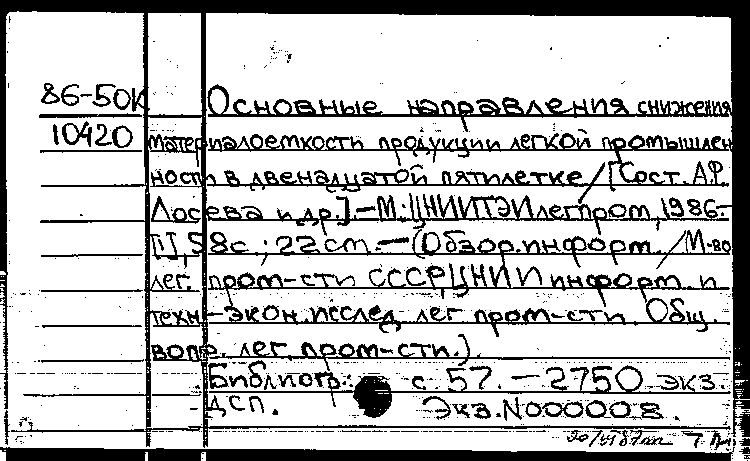 86-50К Основные направления снижения
10420 материалоемкости продукции легкой промышлен
ности в двенадцатой пятилетке / [Сост. А.Р.
Лосева и др.].—М.: ЦНИИТЭИлегпром, 1986.—
[1], 58с.; 22 см.—(Обзор. информ. / М-во
лег. пром-сти СССР, ЦНИИ информ. и
техн-экон. исслед. лег. пром-сти. Общ.
вопр. лег. пром-сти.).
Библиогр.: с. 57.—2750 экз.
ДСП. Экз.N000008.